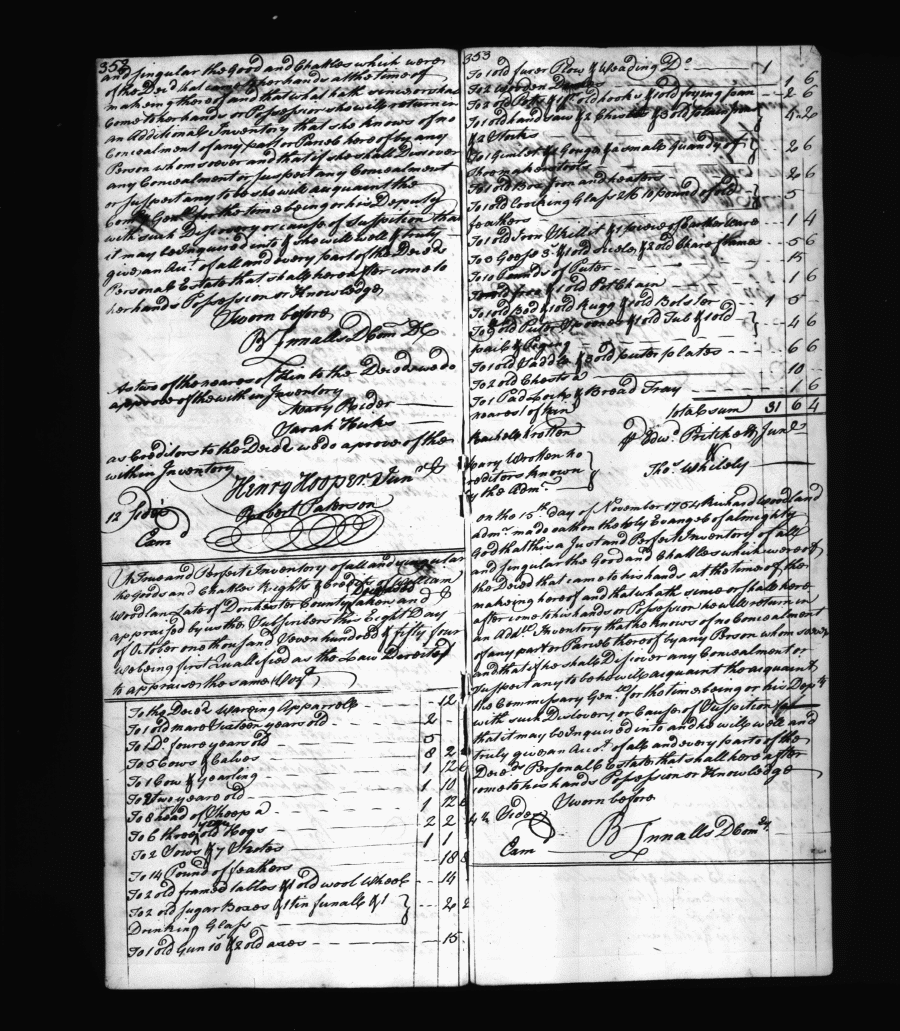 352
and singular the Good and Chatles which were
of the Deced that came to her hands at the time of
makeing thereof and that what hath since or shall
Come to her hands or Possession she will return in
an Additional Inventory that she knows of no
Concealment of any part or Parcel hereof by any
Person whomsoever and that if she shall Discover
any Concealment or suspect any Concealment
or suspect any to be she will acquaint the
Comy Genl for the time being or his Deputy
with such Discovery or cause of Suspition that
it may be Inquired into & she will well & truly
give an Acct. of all and every part of the Deceds
Personal Estate that shall hereafter come to
her hands Possession or Knowledge
Sworn before
B Innalls D Comy DC
As two of the neares of Kin to the Deced we do
approve of the within Inventory
Mary Rider
Sarah Hicks
as Creditors to the Deced we do aprove of the
within Inventory
Henry Hooper Junr
Robert Paterson
12 Sides
Exmd
A True and Perfect Inventory of all and singular
the Goods and Chatles Rights & Credits of William
Deceased
Woodland Late of Dorchester County taken and
appraised by us the Subscribers this Eight Day
of October one thousand Seven hundred & fifty four
we being first Quallefied as the Law Directed
to appraise the same Vizt
To the Deceds Waring Apparrell 12
To 1 old mare Sixteen years old 2
To 1 Do foure years old 5
To 5 Cows & Calves 8 2
To 1 Cow & yearling 1 12 6
To 2 two years old 1 10
To 8 head of Sheep a 1 12
year
To 6 three old Hogs 2 2
To 2 Sows & 7 Shotes 1 1
To 14 Pound of feathers 18
To 2 old framed tables & 1 old wool Wheel 14
To 2 old sugar Boxes & 1 tin funall & 1
Drinking Glass 2
To 1 old Gun 10s & 2 old axes 15
353
To 1 old fuser Plow & Weading Do 1
To 2 Wooden 1 6
To 2 old Potts & Pr old hooks & 1 old frying pan 2 6
To 1 old hand saw & 2 Chissels & 3 old
& 2 Stocks
To 1 Gimlet & 1 Gouge & a small quandy of 2 6
Shoemakers tools
To 1 old Box Iron and heaters 2 6
To 1 old Loocking Glass 2/6 10 pound of old 5
feathers
To 1 old Iron Skillet & 1 peice of Earthen ware 1 4
To 3 Geese 3s & 1 old sidle & 2 old Chare frames 5 6
To 10 Pounds of Puter 15
& 1 old Pot Chain 1 6
To 1 old Bed & 1 old Rugg & 1 old Bolster 1 5
To 3 old Puter Spoones & 1 old Tub & 1 old 4 6
pail & Piging
To 1 old Saddle & 3 old puter plates 6 6
To 2 old Chests 10
To 1 Pad Lock & Bread Tray 1 6
neares of Kin
total sum 31 6 4
Rachel Wrotten
pr Edwd Pritchett Junr
Thos Whitely
Mary Wrotten no
Creditors Known
by the Admr
on the 15th day of November 1754 Richard Woodland
admr made oath on the Holy Evangels of almighty
God that this is a Just and Perfect Inventory of all
and singular the Good and Chatles which were of
the Deced that came to his hands at the time of the
makeing hereof and that what hath since or shall here
after come to his hands or Possession he will return in
an Addl Inventory that he knows of no Concealment
of any part or Parcel thereof by any Person whomsoever
and that if he shall Discover any Concealment or
Suspect any to be he will acquaint the acquaint
the Commissary Genl for the time being or his Depy
with such Discovery or Cause of Suspition
that it may be Inquired into and he will well and
truly give an Acct. of all and every parte of the
Deceds Personal Estate that shall hereafter
come to his hands Possession or Knowledge
Sworn before
4 Sides
B Innalls D Comy
Exmd